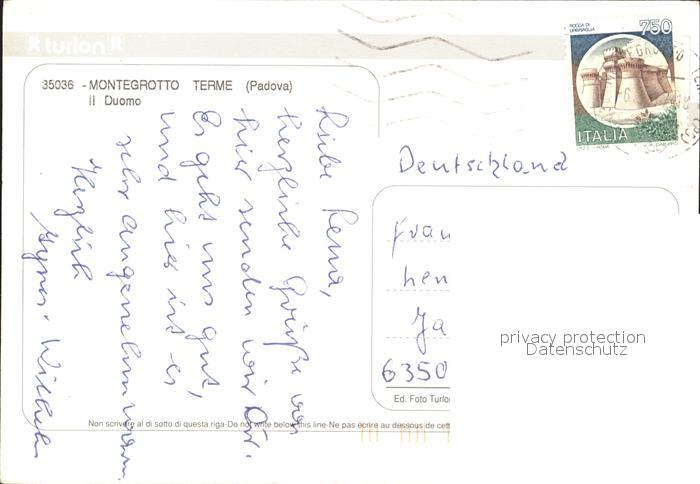 turlon
35036 - MONTEGROTTO TERME (Padova)
Il Duomo
ROCCA DI URBISAGLIA
750
ITALIA
Liebe Lena,
herzliche Grüße von
hier senden wir Dir.
Es geht uns gut,
und hier ist es
sehr angenehm warm.
Herzlich
Wilhelm
Deutschland
Frau
hen
Ja
6350
privacy protection
Datenschutz
Ed. Foto Turlon
Non scrivere al di sotto di questa riga-Do not write below this line-Ne pas écrire au dessous de cett